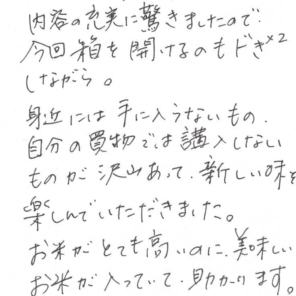 内容の充実に驚きましたので
今回箱を開けるのもドキ×2
しながら。
身近には手に入らないもの.
自分の買物では講入しない
ものが沢山あって、新しい味を
楽しんでいただきました。
お米がとても高いのに、美味しい
お米が入っていて、助かります。